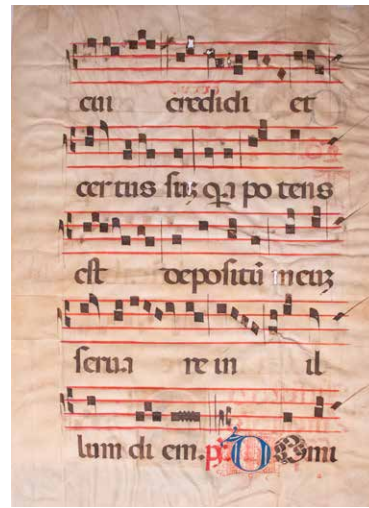 cui credidi et
certus suʒ qa potens
est depositū meuʒ
serua re in il
lum di em. ps Domi